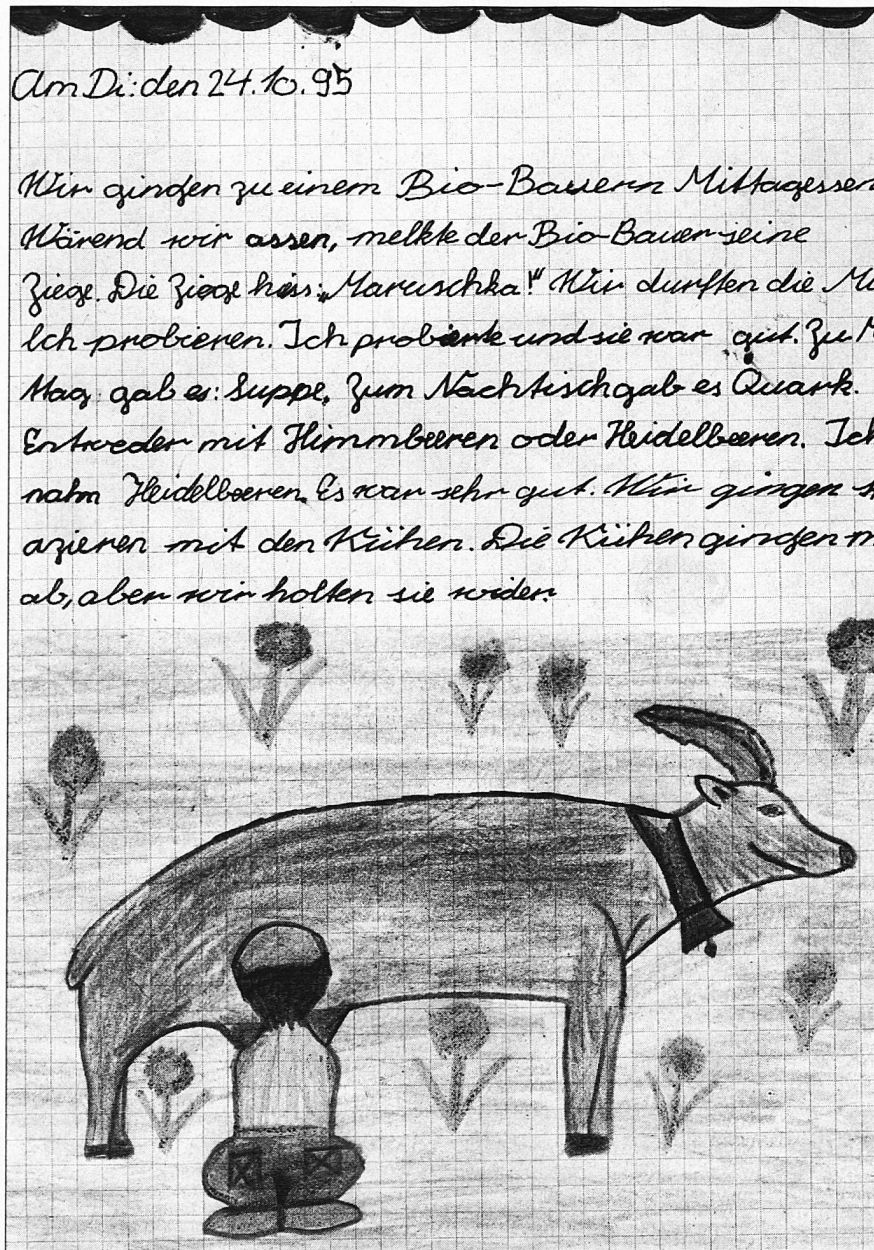 Am Di: den 24.10.95
Wir gingen zu einem Bio-Bauern Mittagessen
Wärend wir assen, melkte der Bio-Bauer seine
Ziege. Die Ziege hiss: „Maruschka!" Wir durften die Mi
lch probieren. Ich probierte und sie war gut. Zu M
ttag gab es: Suppe. Zum Nachtisch gab es Quark.
Entweder mit Himmbeeren oder Heidelbeeren. Ich
nahm Heidelbeeren. Es war sehr gut. Wir gingen
azieren mit den Kühen. Die Kühen gingen
ab, aber wir holten sie wider.